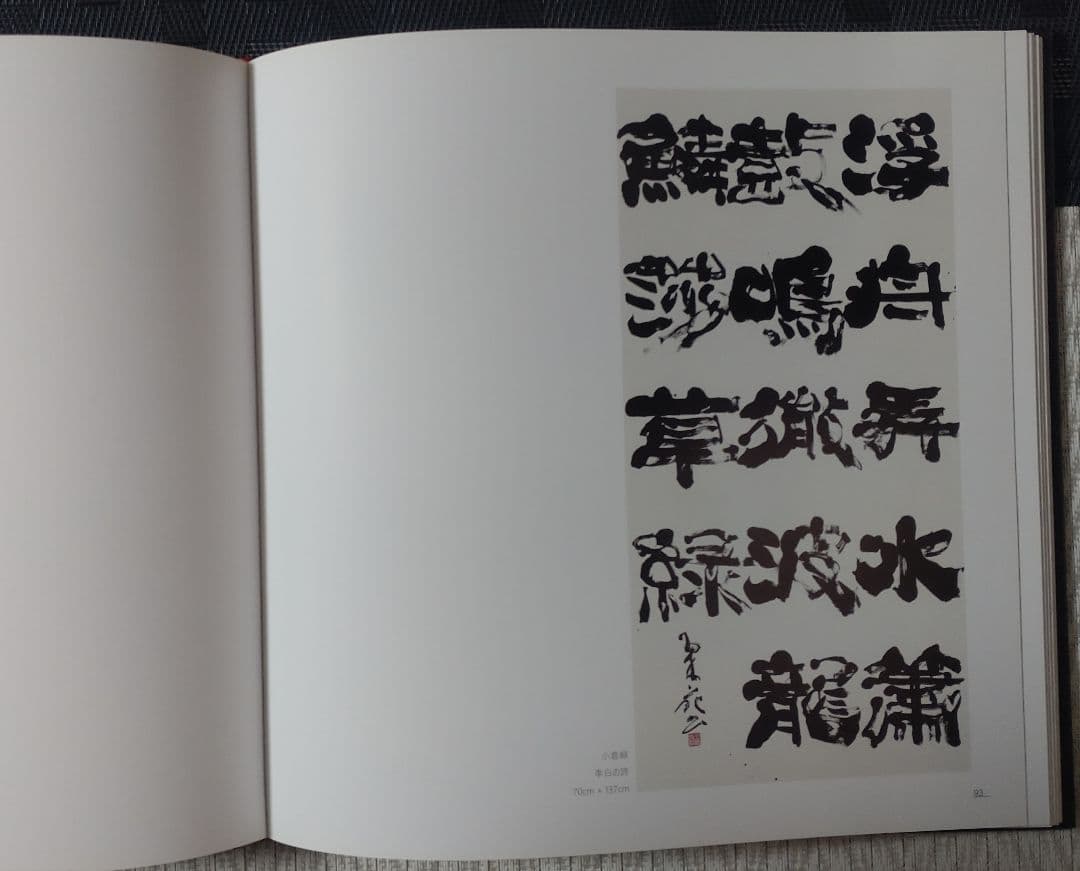 浮舟弄水簫
鼓鳴微波龍
鱗莎草緑
李白の詩
70cm × 137cm
93